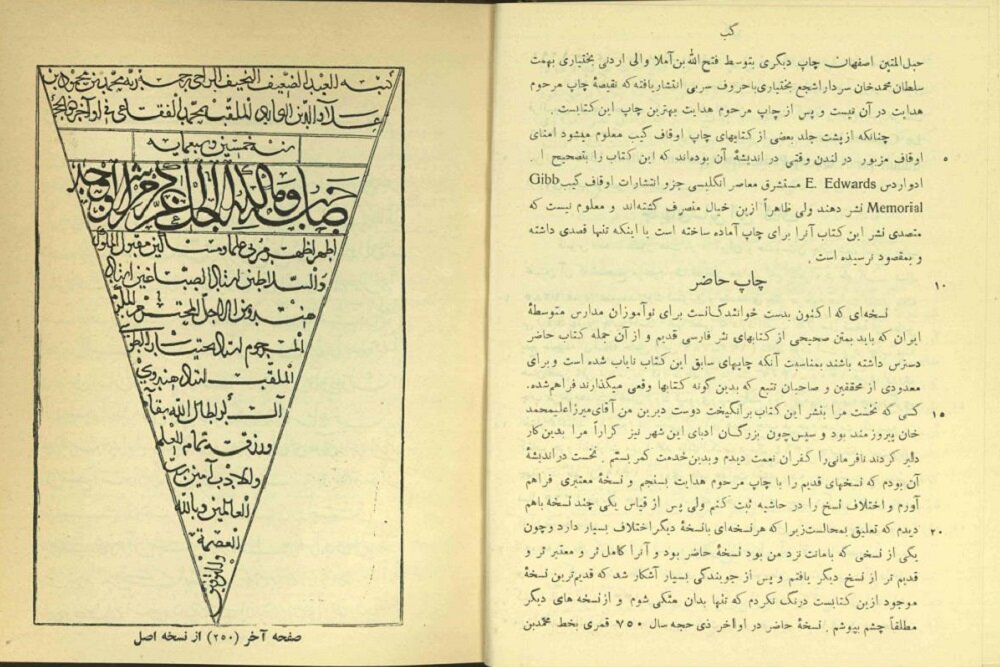 کب
حبل‌المتین اصفهان چاپ دیگری بتوسط فتح‌الله‌بن‌آملا والی اردنی بختیاری بهمت
سلطان محمدخان سردار اشجع بختیاری باحروف سربی انتشاریافته‌که نقیصهٔ چاپ مرحوم
هدایت در آن نیست و پس از چاپ مرحوم هدایت بهترین چاپ این‌کتابست .
چنانکه ازپشت جلد بعضی از کتابهای چاپ اوقاف کیب معلوم میشود امنای
۵
اوقاف مزبور در لندن وقتی در اندیشهٔ آن بوده‌اند که این کتاب را بتصحیح ا .
ادواردس E. Edwards مستشرق معاصر انگلیسی جزو انتشارات اوقاف کیب Gibb
Memorial نشر دهند ولی ظاهراً ازین خیال منصرف گشته‌اند و معلوم نیست که
متصدی نشر این کتاب آنرا برای چاپ آماده ساخته است یا اینکه تنها قصدی داشته
و بمقصود نرسیده است .
۱۰
چاپ حاضر
نسخه‌ای که اکنون بدست خوانندگانست برای نوآموزان مدارس متوسطهٔ
ایران که باید بمتن صحیحی از کتابهای نثر فارسی قدیم و از آن جمله کتاب حاضر
دسترس داشته باشند بمناسبت آنکه چاپهای سابق این‌کتاب نایاب شده است و برای
معدودی از محققین و صاحبان تتبع که بدین گونه کتابها وقعی میگذارند فراهم‌شده.
۱۵
کسی که نخست مرا بنشر این کتاب برانگیخت دوست دیرین من آقای‌میرزاعلیمحمد
خان پیروزمند بود و سپس چون بزرگان ادبای این شهر نیز کراراً مرا بدین‌کار
دلیر کردند نافرمانی‌را کفران نعمت دیدم و بدین‌خدمت کمر بستم . نخست دراندیشهٔ
آن بودم که نسخهای قدیم را با چاپ مرحوم هدایت بسنجم و نسخهٔ معتبری فراهم
آورم و اختلاف نسخ را در حاشیه ثبت کنم ولی پس از قیاس یکی چند نسخه باهم
۲۰
دیدم که تعلیق بمحالست‌زیرا که هرنسخه‌ای بانسخهٔ دیگر اختلاف بسیار دارد وچون
یکی از نسخی که بامانت نزد من بود نسخهٔ حاضر بود و آنرا کامل‌تر و معتبر تر و
قدیم تر از نسخ دیگر یافتم و پس از جویندگی بسیار آشکار شد که قدیم‌ترین نسخهٔ
موجود ازین کتابست درنگ نکردم که تنها بدان متکی شوم و ازنسخه های دیگر
مطلقاً چشم بپوشم . نسخهٔ حاضر در اواخر ذی حجه سال ۷۵۰ قمری بخط محمدبن
کتبه العبد الضعیف النحیف الراجی
علاء الدین
سنه خمسین و سبعمایه
والسلاطین استاد الصباغین استاد
المرحوم استاد
الملقب استاد
الله بقاه
ورزقه تمام العلم
والادب آمین یا رب
العالمین وبالله
العصمة
والتوفیق
صفحه آخر (۲۵۰) از نسخه اصل